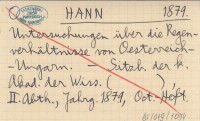 HANN 1879.
Untersuchungen über die Regen-
verhältnisse von Oesterreich-
-Ungarn. - Sitzb. der k.
Akad. der Wiss. ( )
II. Abth., Jahrg. 1879, Oct. Heft.